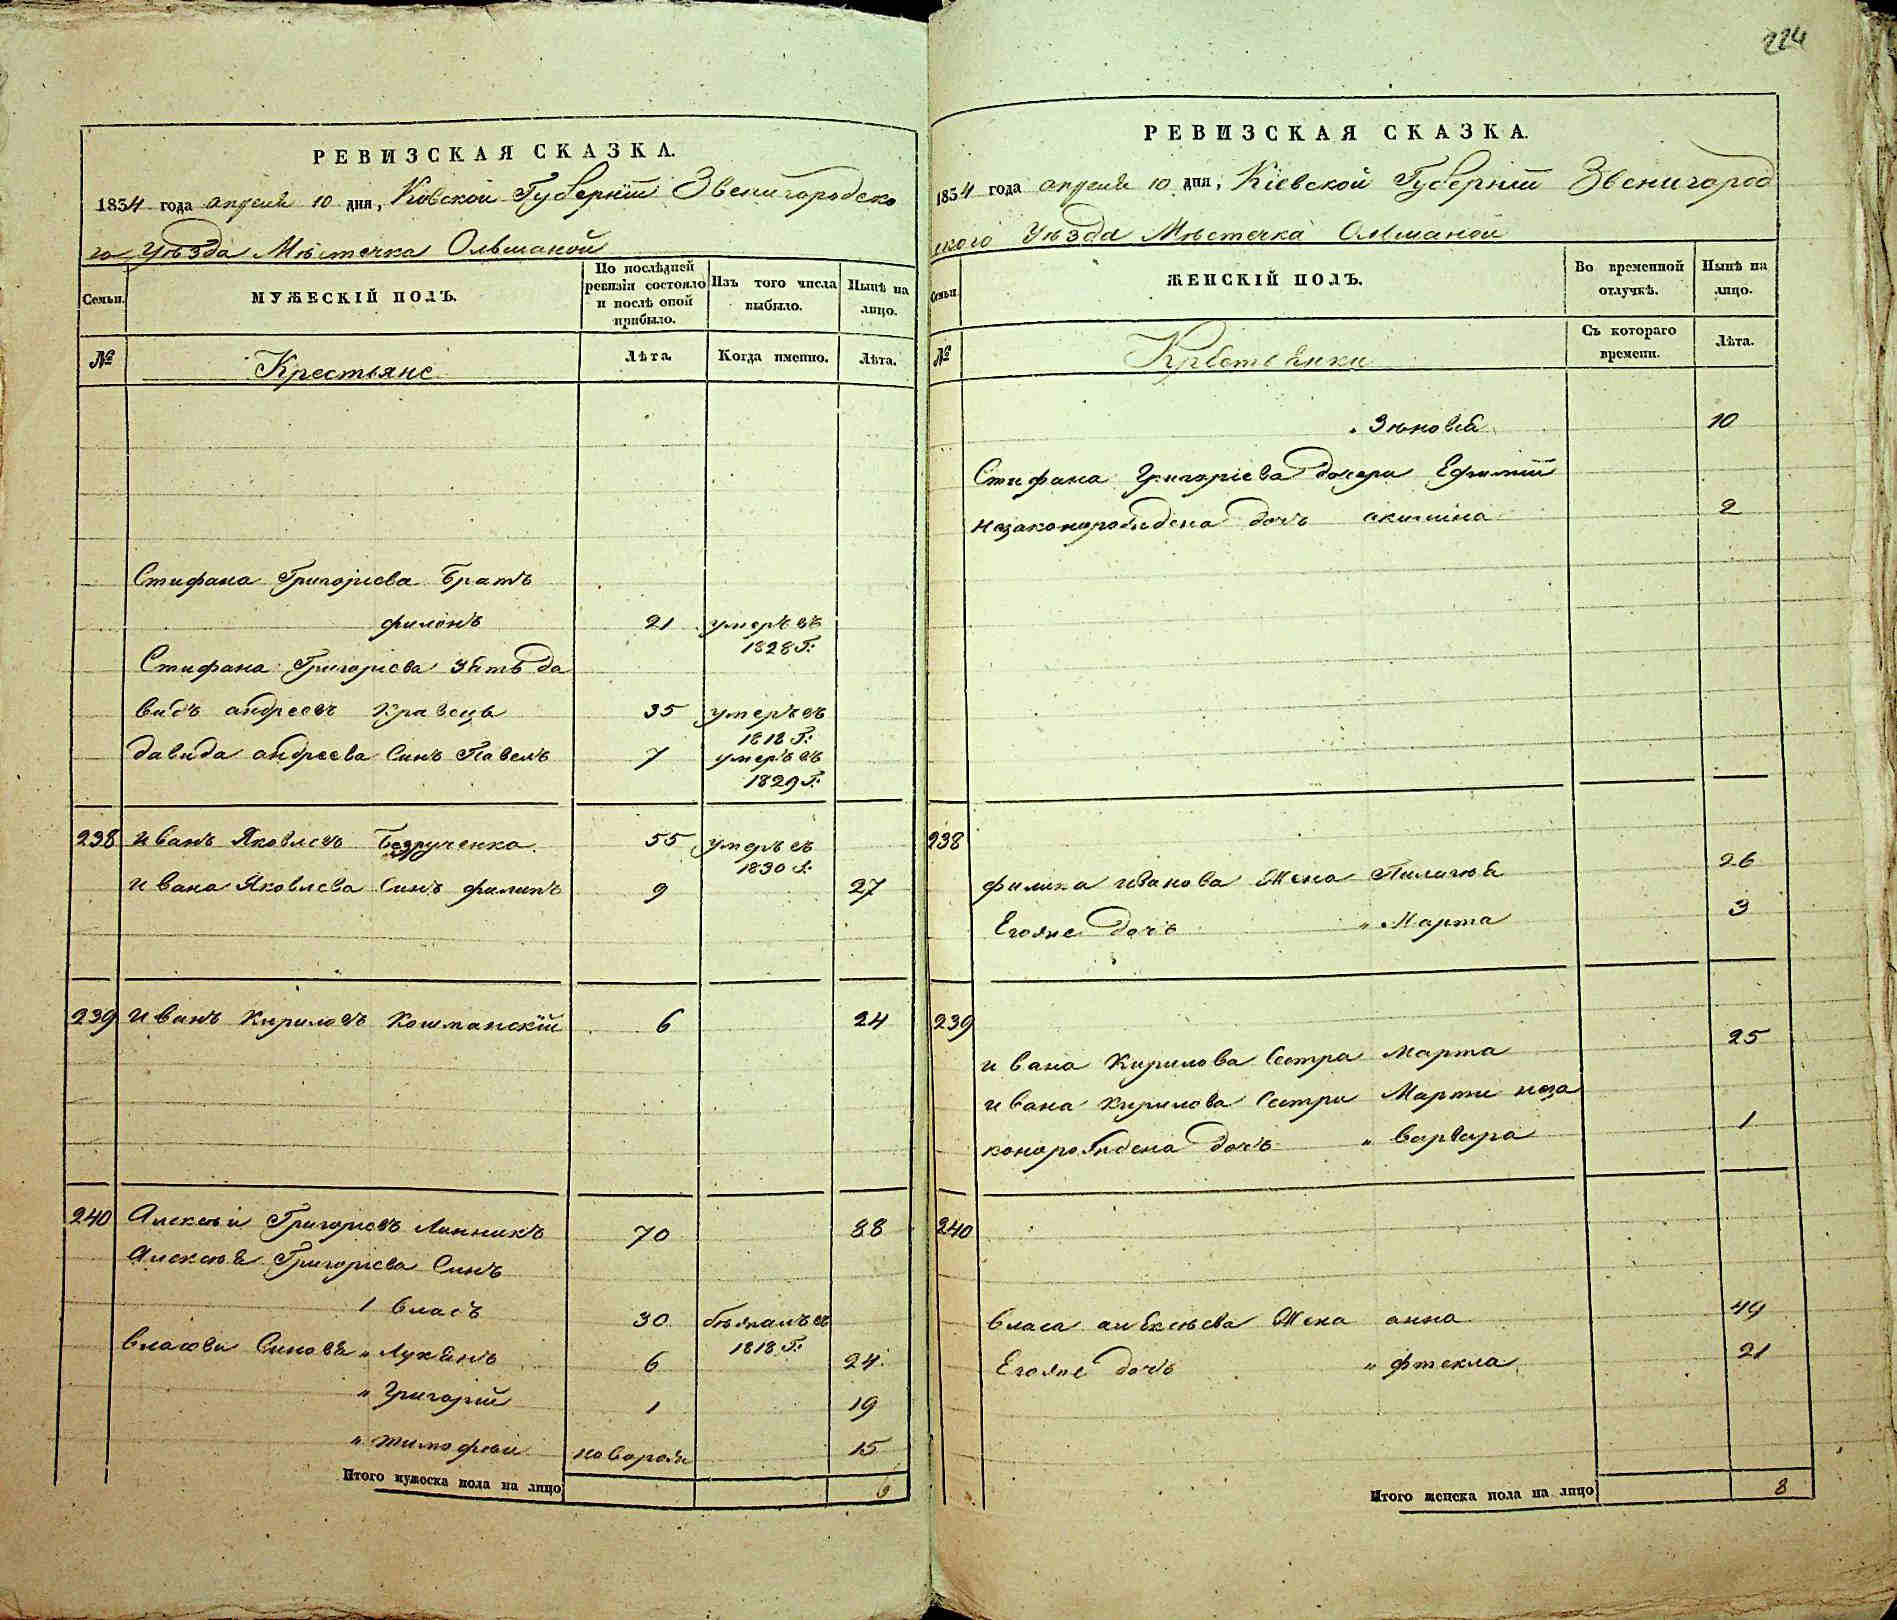 224
РЕВИЗСКАЯ СКАЗКА.
1834 года апреля 10 дня, Киевской Губерніи Звенигородско
го Уѣзда Мѣстечка Ольшаной
Семьи.
МУЖЕСКІЙ ПОЛЪ.
По послѣдней ревизіи состояло и послѣ оной прибыло.
Изъ того числа выбыло.
Нынѣ на лицо.
№
Крестьяне
Лѣта.
Когда именно.
Лѣта.
Стифана Григориева Братъ
филонъ 21 умеръ въ 1828 Г:
Стифана Григориева Зять да
видъ андреевъ Кравецъ 35 умеръ въ 1818 Г:
давида андреева Синъ Павелъ 7 умеръ въ 1829 Г:
238 иванъ Яковлевъ Безрученко 55 умеръ въ 1830 г:
ивана Яковлева Синъ филипъ 9 27
239 иванъ Кириловъ Кошманскій 6 24
240 Алексѣй Григориевъ Линникъ 70 88
Алексѣя Григориева Синъ
1 власъ 30 бѣжалъ въ 1818 Г:
власови Синовя „ Лукянъ 6 24
„ Григорій 1 19
„ тимофѣи новорож 15
Итого мужеска пола на лицо 6
РЕВИЗСКАЯ СКАЗКА.
1834 года апреля 10 дня, Кіевской Губерніи Звенигород
ского Уѣзда Мѣстечка Ольшаной
Семьи.
ЖЕНСКІЙ ПОЛЪ.
Во временной отлучкѣ.
Нынѣ на лицо.
№
Крестьянки
Съ котораго времени.
Лѣта.
„ Зѣновія 10
Стифана Григоріева дочери Ефимии
незаконорождена дочъ акилина 2
238
филипа иванова Жена Пилагея 26
Егояже дочъ „ Марта 3
239
ивана Кирилова Сестра марта 25
ивана кирилова Сестри Марти неза
конорождена дочъ „ варвара 1
240
власа алексѣева Жена анна 49
Егояже дочъ „ фтекла 21
Итого женска пола на лицо 8